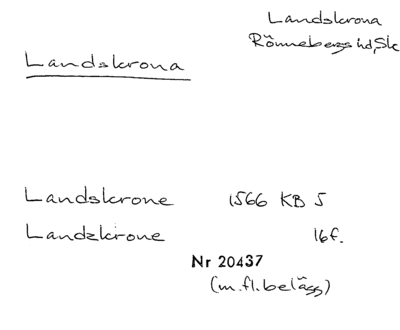 Landskrona
Rönnebergs hd, Sk
Landskrona
Landskrone 1566 KB 5
Landzkrone 16f.
Nr 20437
(m.fl.belägg)